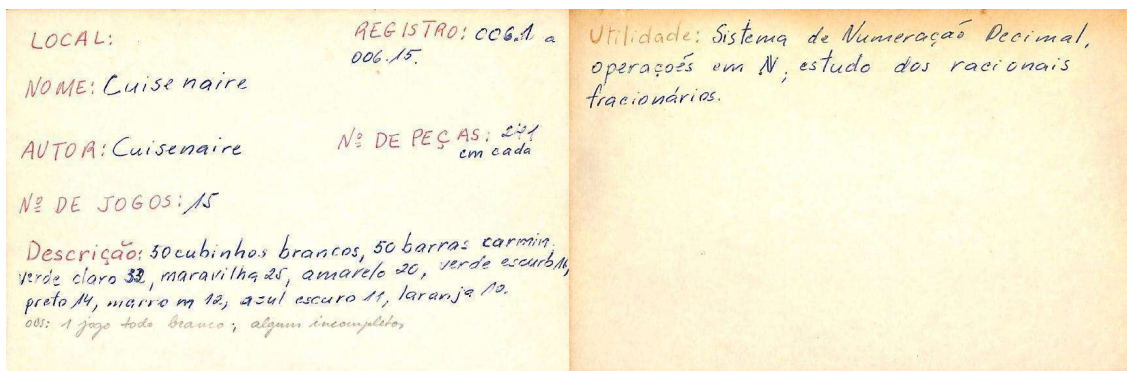 LOCAL:
REGISTRO: 006.1 a
006.15.
NOME: Cuisenaire
AUTOR: Cuisenaire
Nº DE PEÇAS: 241
em cada
Nº DE JOGOS: 15
Descrição: 50 cubinhos brancos, 50 barras carmin,
verde claro 33, maravilha 25, amarelo 20, verde escuro 16,
preto 14, marrom 12, azul escuro 11, laranja 10.
obs: 1 jogo todo branco; alguns incompletos
Utilidade: Sistema de Numeração Decimal,
operações em N, estudo dos racionais
fracionários.